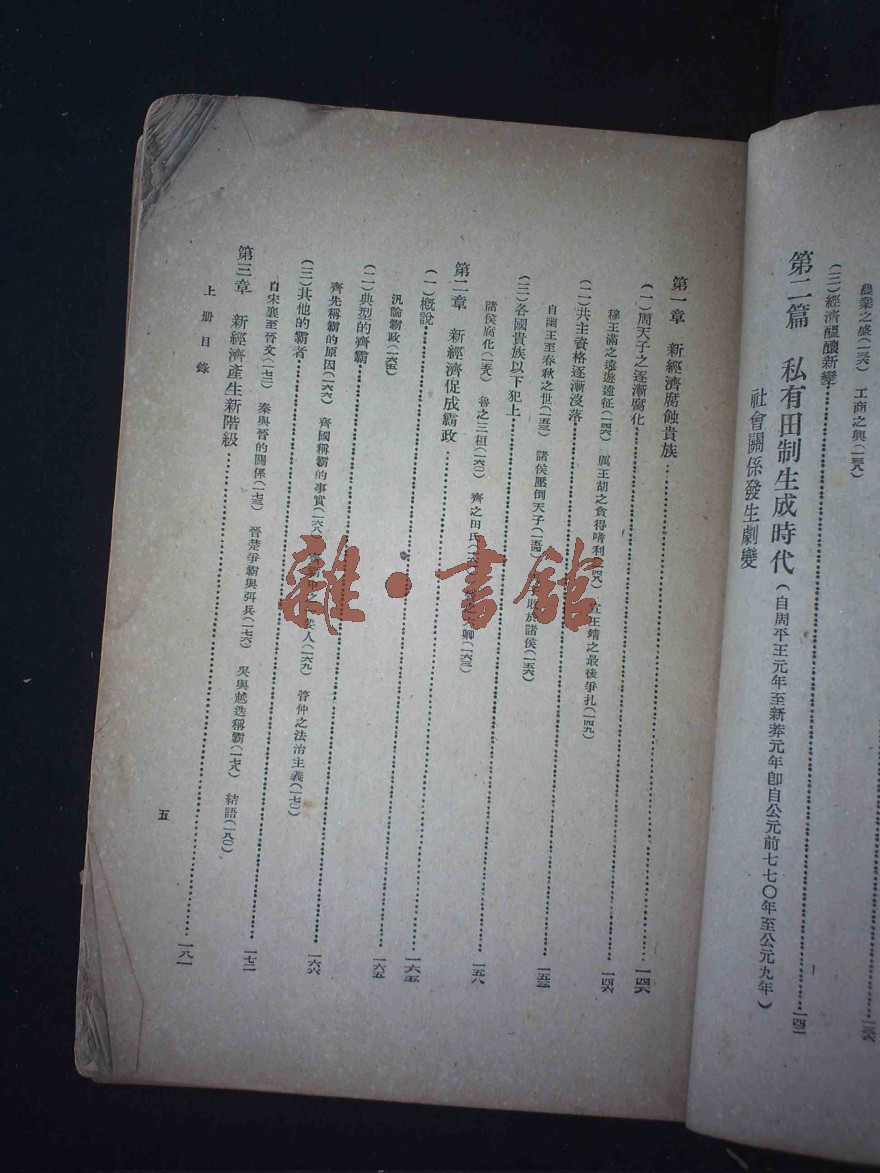 農業之盛(一三六) 工商之興(一三八)
(三)經濟醞釀新變
第二篇 私有田制生成時代(自周平王元年至新莽元年卽自公元前七七〇年至公元九年)
社會關係發生劇變
第一章 新經濟腐蝕貴族
(一)周天子之逐漸腐化……一四六
穆王滿之遠遊遠征(一四六) 厲王胡之貪得嗜利 王靖之最後爭扎(一四九)
(二)共主資格逐漸沒落
自幽王至春秋之世(一五三) 諸侯壓倒天子 於諸侯(一五六)
(三)各國貴族以下犯上
諸侯腐化 魯之三桓(一六〇) 齊之田氏 卿(一六三)
第二章 新經濟促成霸政……一六五
(一)概說……一六五
汎論霸政(一六五)
(二)典型的齊霸……一六六
齊先稱霸的原因(一六六) 齊國稱霸的事實(一六八) 人(一六九) 管仲之法治主義(一七一)
(三)其他的霸者……一七二
自宋襄至晉文(一七二) 秦與晉的關係 晉楚爭霸與弭兵(一七六) 吳與越迭稱霸(一七八) 結語(一八〇)
第三章 新經濟產生新階級……一八一
上册目錄
五
雜·書館